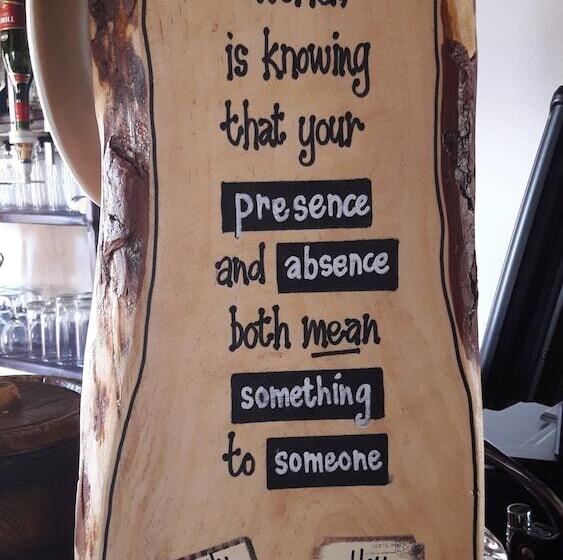 world,
is knowing
that your
presence
and absence
both mean
something
to someone